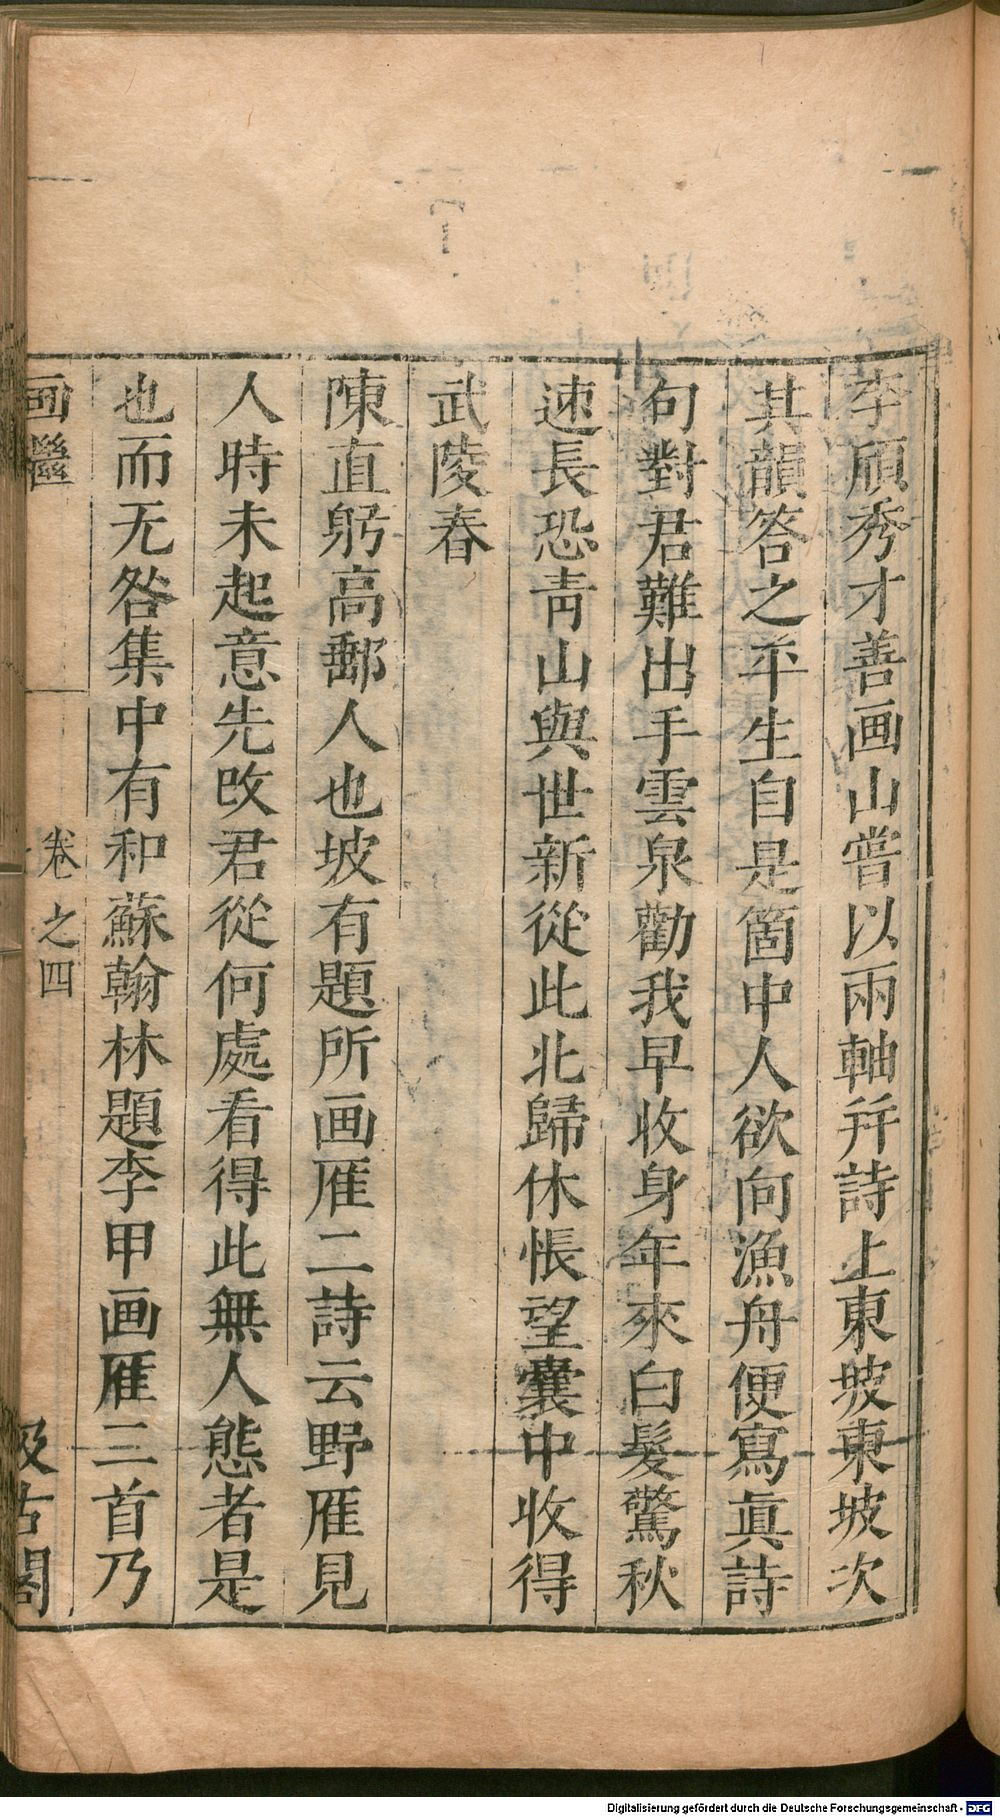 李頎秀才善画山嘗以兩軸并詩上東坡東坡次
其韻答之平生自是箇中人欲向漁舟便寫眞詩
句對君難出手雲泉勸我早收身年來白髮驚秋
速長恐青山與世新從此北歸休悵望囊中收得
武陵春
陳直躬高郵人也坡有題所画雁二詩云野雁見
人時未起意先改君從何處看得此無人態者是
也而无咎集中有和蘇翰林題李甲画雁三首乃
画繼 卷之四 汲古閣
Digitalisierung gefördert durch die Deutsche Forschungsgemeinschaft - DFG